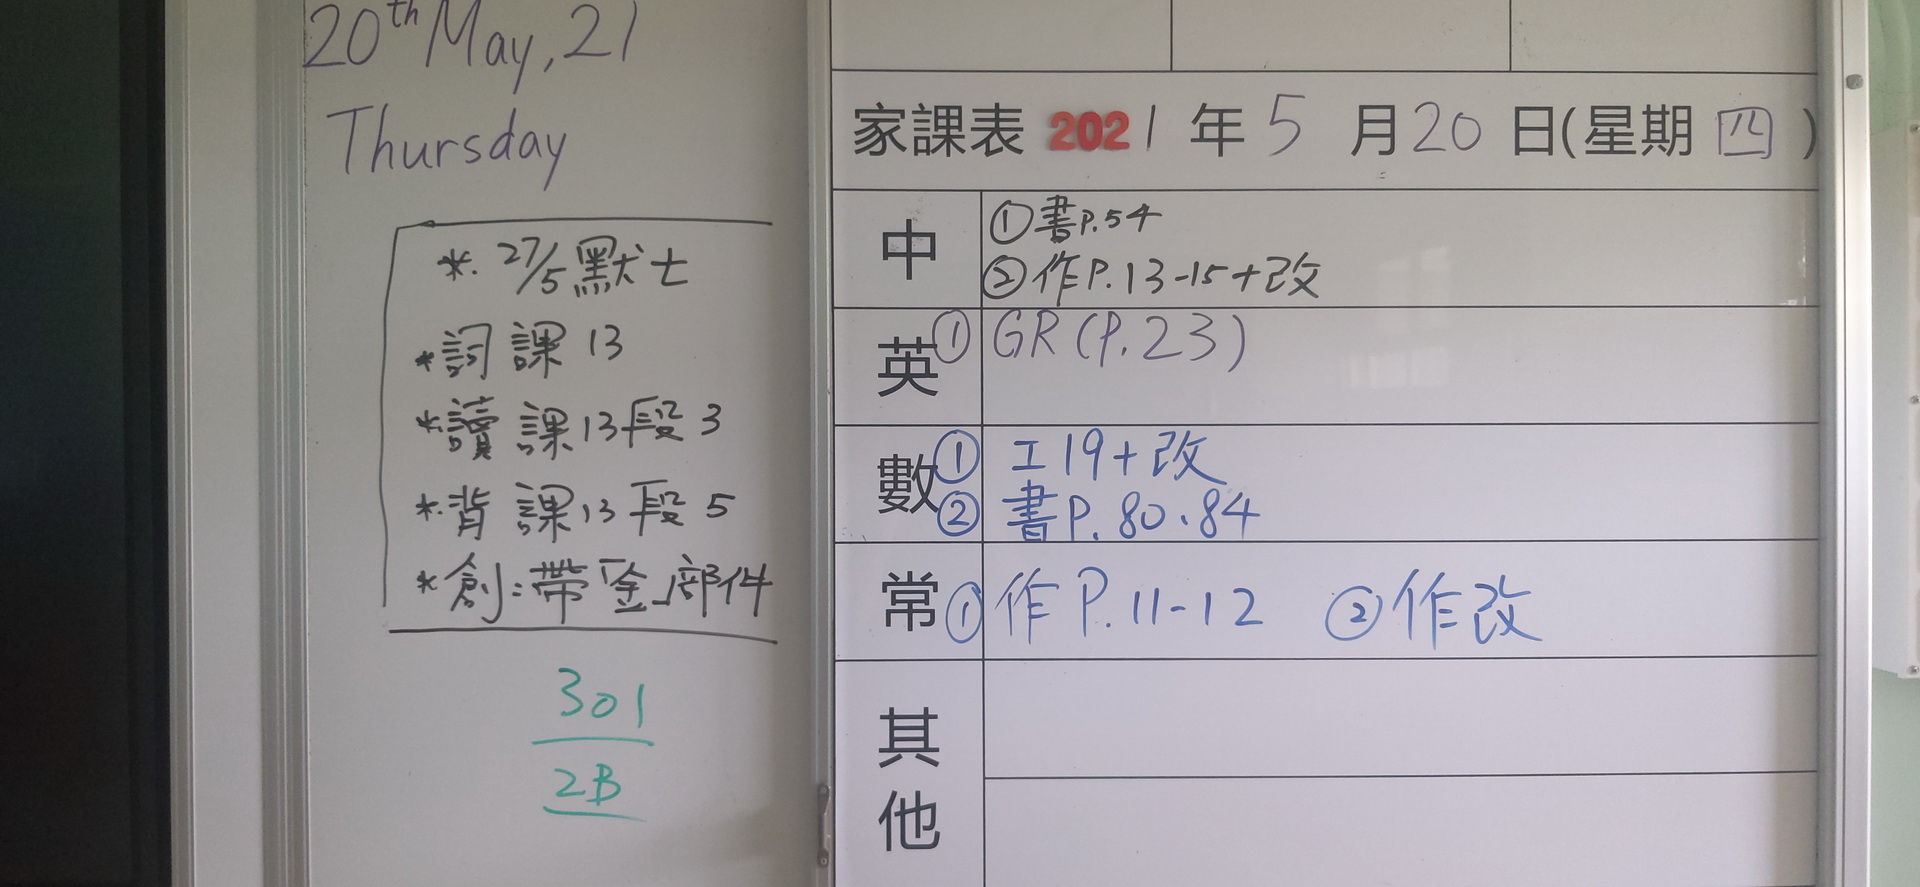 20th May, 21
Thursday
*. 27/5 默七
*詞 課 13
*讀 課 13 段 3
*.背 課 13 段 5
*創:帶「金」部件
301
2B
家課表 2021 年 5 月 20 日(星期 四 )
中
①書P.54
②作P.13-15+改
英 ① GR (P.23)
數 ① 工19+改
② 書P.80、84
常 ① 作P.11-12 ②作改
其他